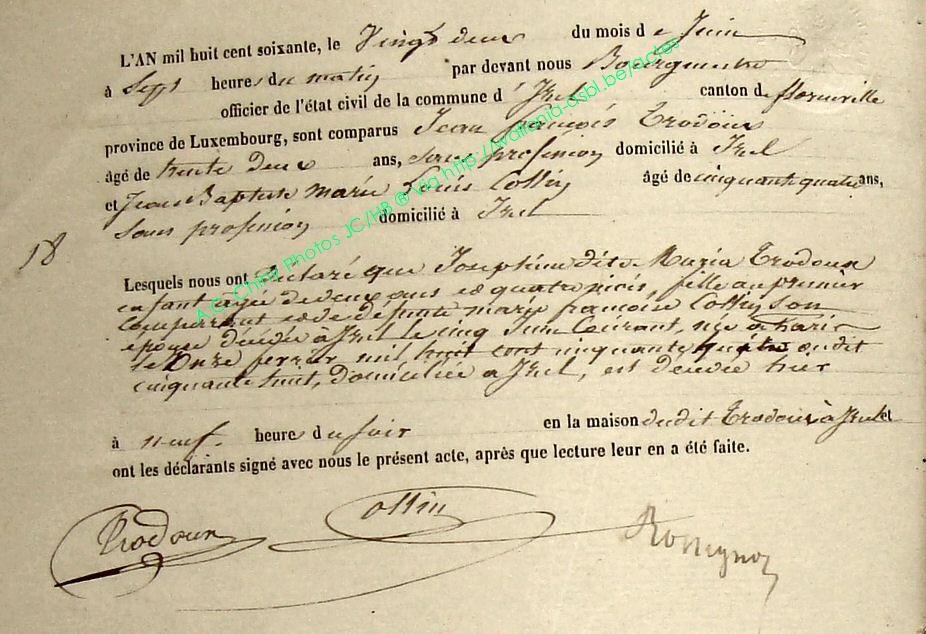 L'AN mil huit cent soixante, le Vingt deux du mois de Juin
à Sept heures du matin par devant nous Bourgmestre
officier de l'état civil de la commune d'Izel canton de florenville
province de Luxembourg, sont comparus Jean françois Trodoux
âgé de trente deux ans, sans profession domicilié à Izel
et Jean Baptiste Marie Louis Collin âgé de cinquante quatre ans,
sans profession domicilié à Izel
18
Lesquels nous ont Déclaré que Joséphine dite Maria Trodoux
enfant agée de deux ans et quatre mois, fille au premier
comparant et de defunte marie françoise Collin son
épouse décédée à Izel le cinq Juin Courant, née à Paris
le Onze fevrier mil huit cent cinquante quatre ou dit
cinquante huit, domiciliée à Izel, est décédée hier
à neuf heures du soir en la maison du dit Trodoux à Izel et
ont les déclarants signé avec nous le présent acte, après que lecture leur en a été faite.
Trodoux Collin Rossignon
A.C. Chiny Photos JC/HB ® Via http://wallonia-asbl.be/actes